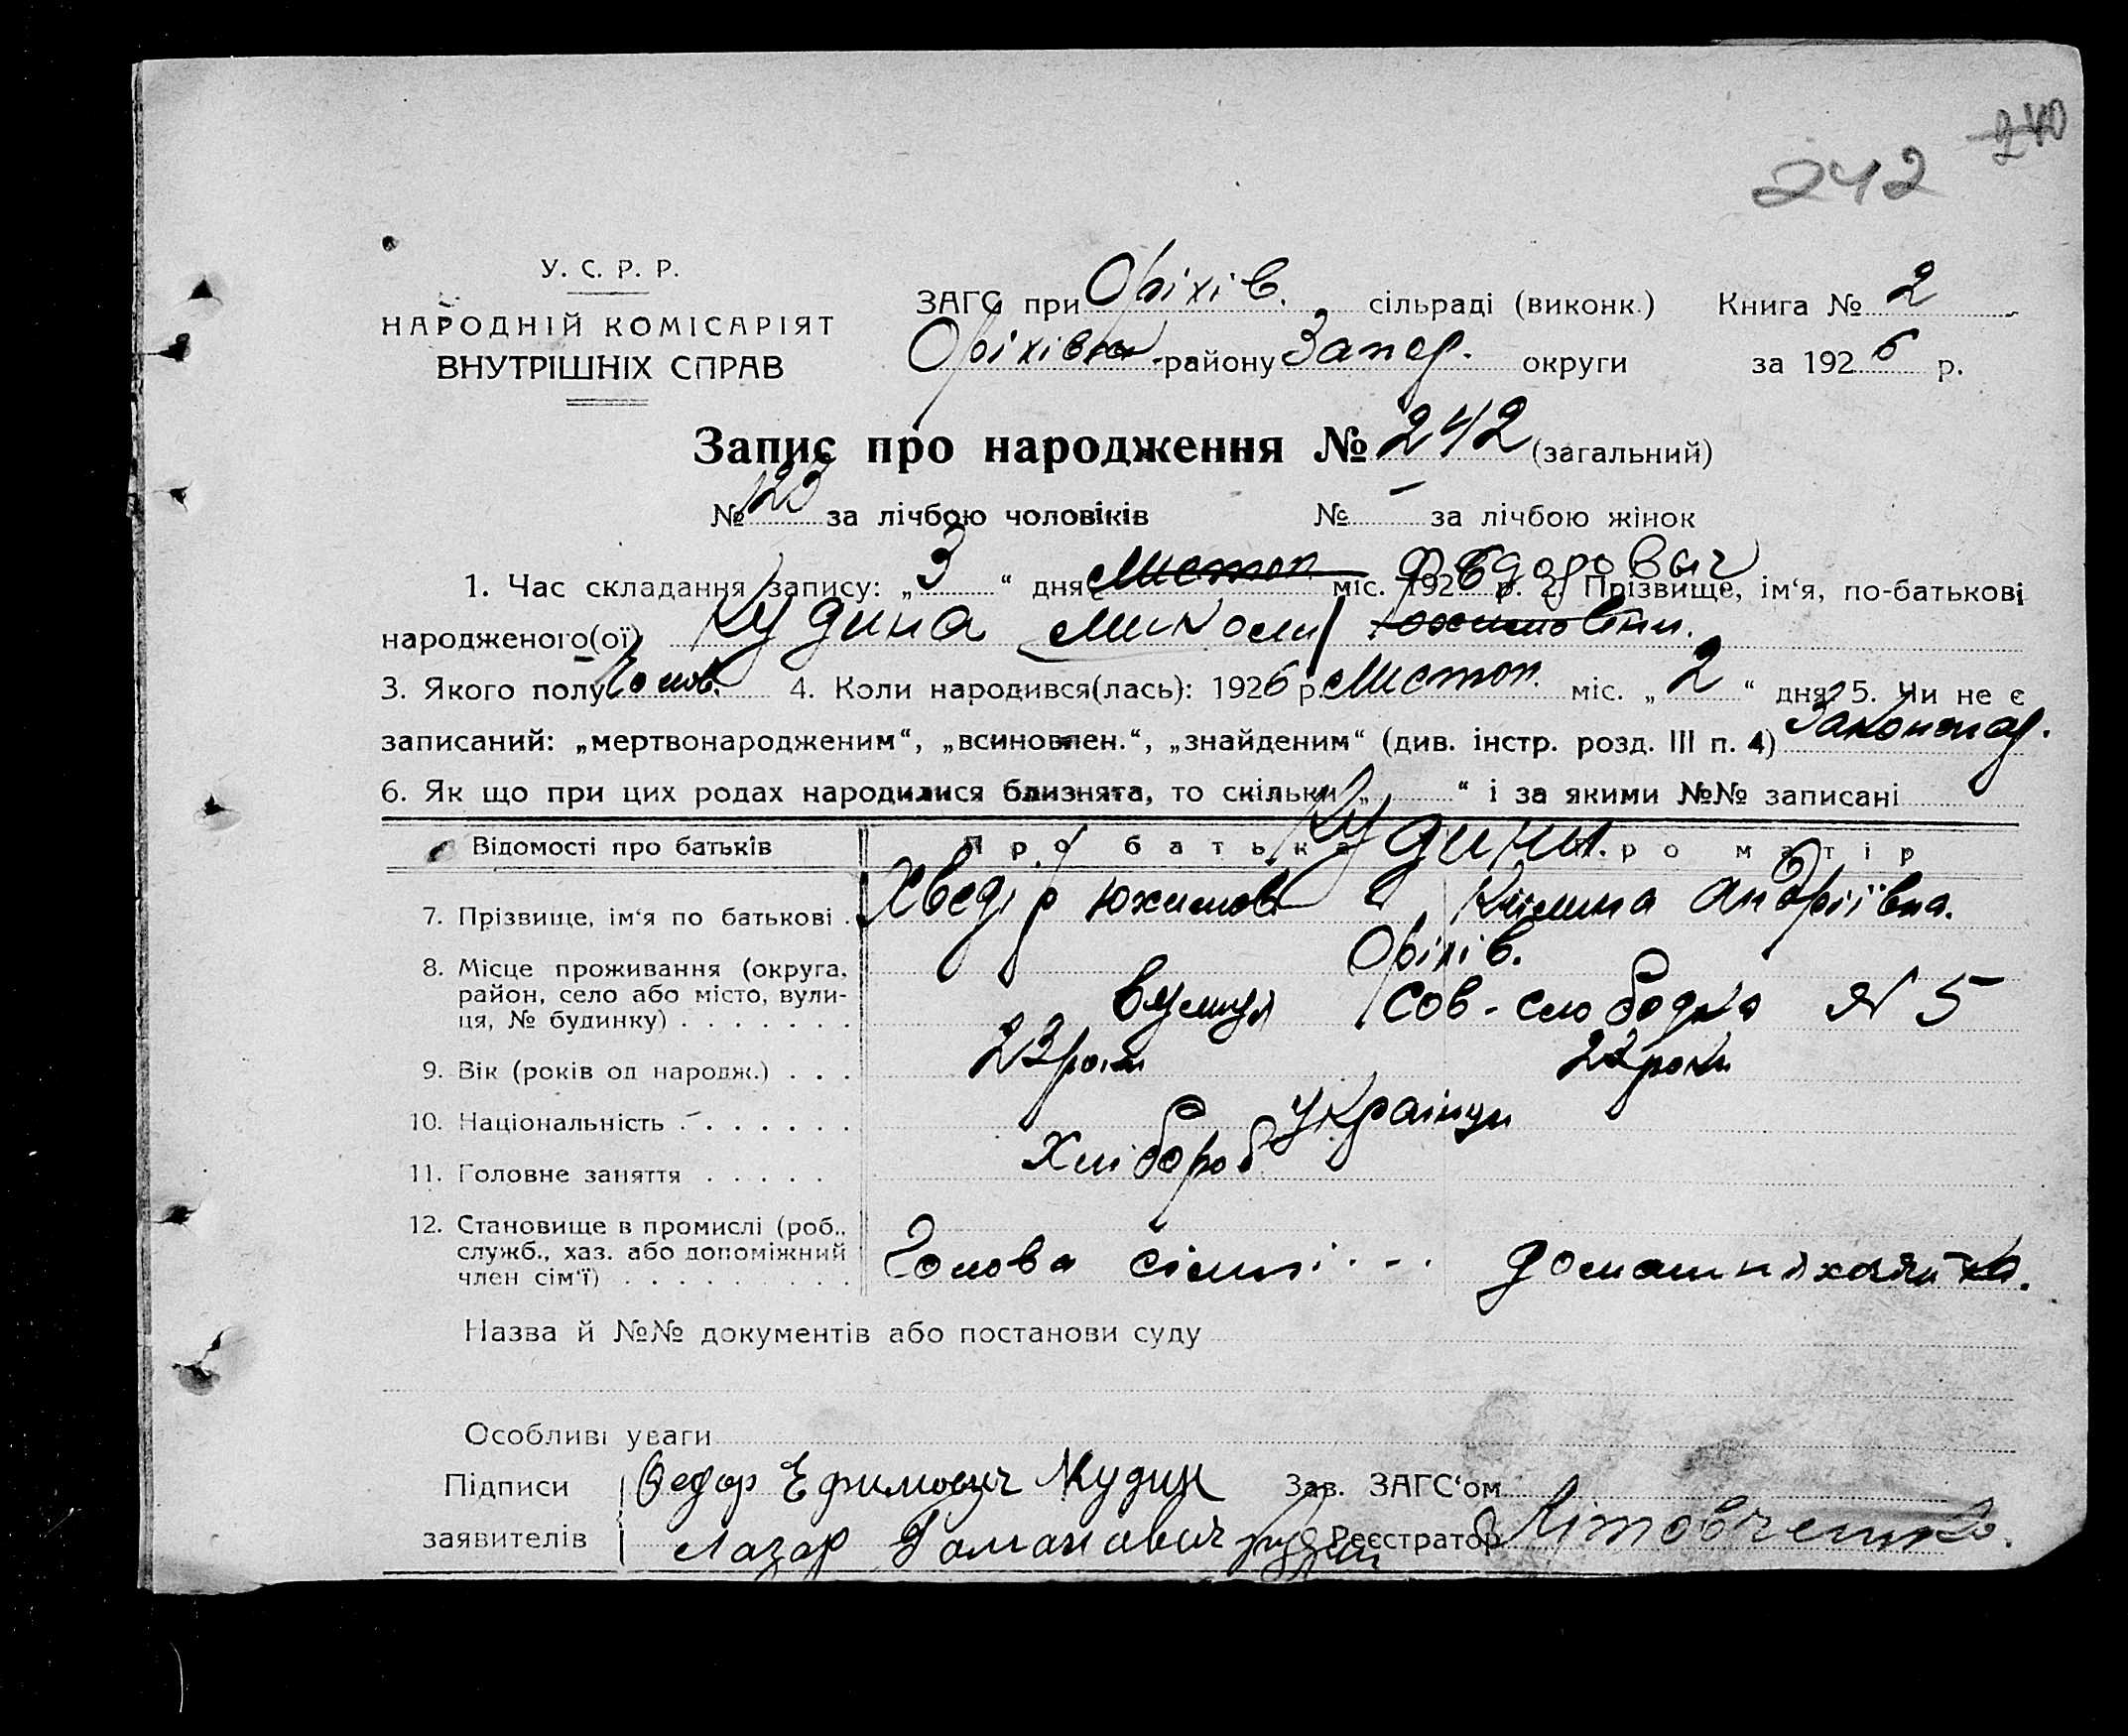 240
242
У. С. Р. Р.
НАРОДНІЙ КОМІСАРІЯТ
ВНУТРІШНІХ СПРАВ
ЗАГС при Оріхів. сільраді (виконк.) Книга № 2
Оріхівськ. району Запор. округи за 1926 р.
Запис про народження № 242 (загальний)
№ 123 за лічбою чоловіків № – за лічбою жінок
1. Час складання запису: „3“ дня Листоп. міс. 1926 р. 2. Прізвище, ім‘я, по-батькові
Федоровыч
народженого(ої) Кудина Микола
3. Якого полу Чолов. 4. Коли народився(лась): 1926 р. Листоп. міс. „2“ дня 5. Чи не є
записаний: „мертвонародженим“, „всиновлен.“, „знайденим“ (див. інстр. розд. III п. 4) Законнар.
6. Як що при цих родах народилися близнята, то скільки „ “ і за якими №№ записані
Відомості про батьків Про батька Про матір
Кудини.
7. Прізвище, ім‘я по батькові . Хведір Юхимов. Андріївна.
8. Місце проживання (округа, район, село або місто, вули- ця, № будинку) . . . . . . .
Оріхів.
вулиця Сов-слободка № 5
9. Вік (років од народж.) . . . 23 роки 22 роки
10. Національність . . . . . . . Українци
11. Головне заняття . . . . . Хлібороб
12. Становище в промислі (роб., служб., хаз. або допоміжний член сім‘ї) . . . . . . . . .
Голова сімьі. - - домашня хозяйка.
Назва й №№ документів або постанови суду
Особливі уваги
Підписи Федор Ефимович Кудин Зав. ЗАГС‘ом
заявителів Лазар Реєстратор Літовченко.